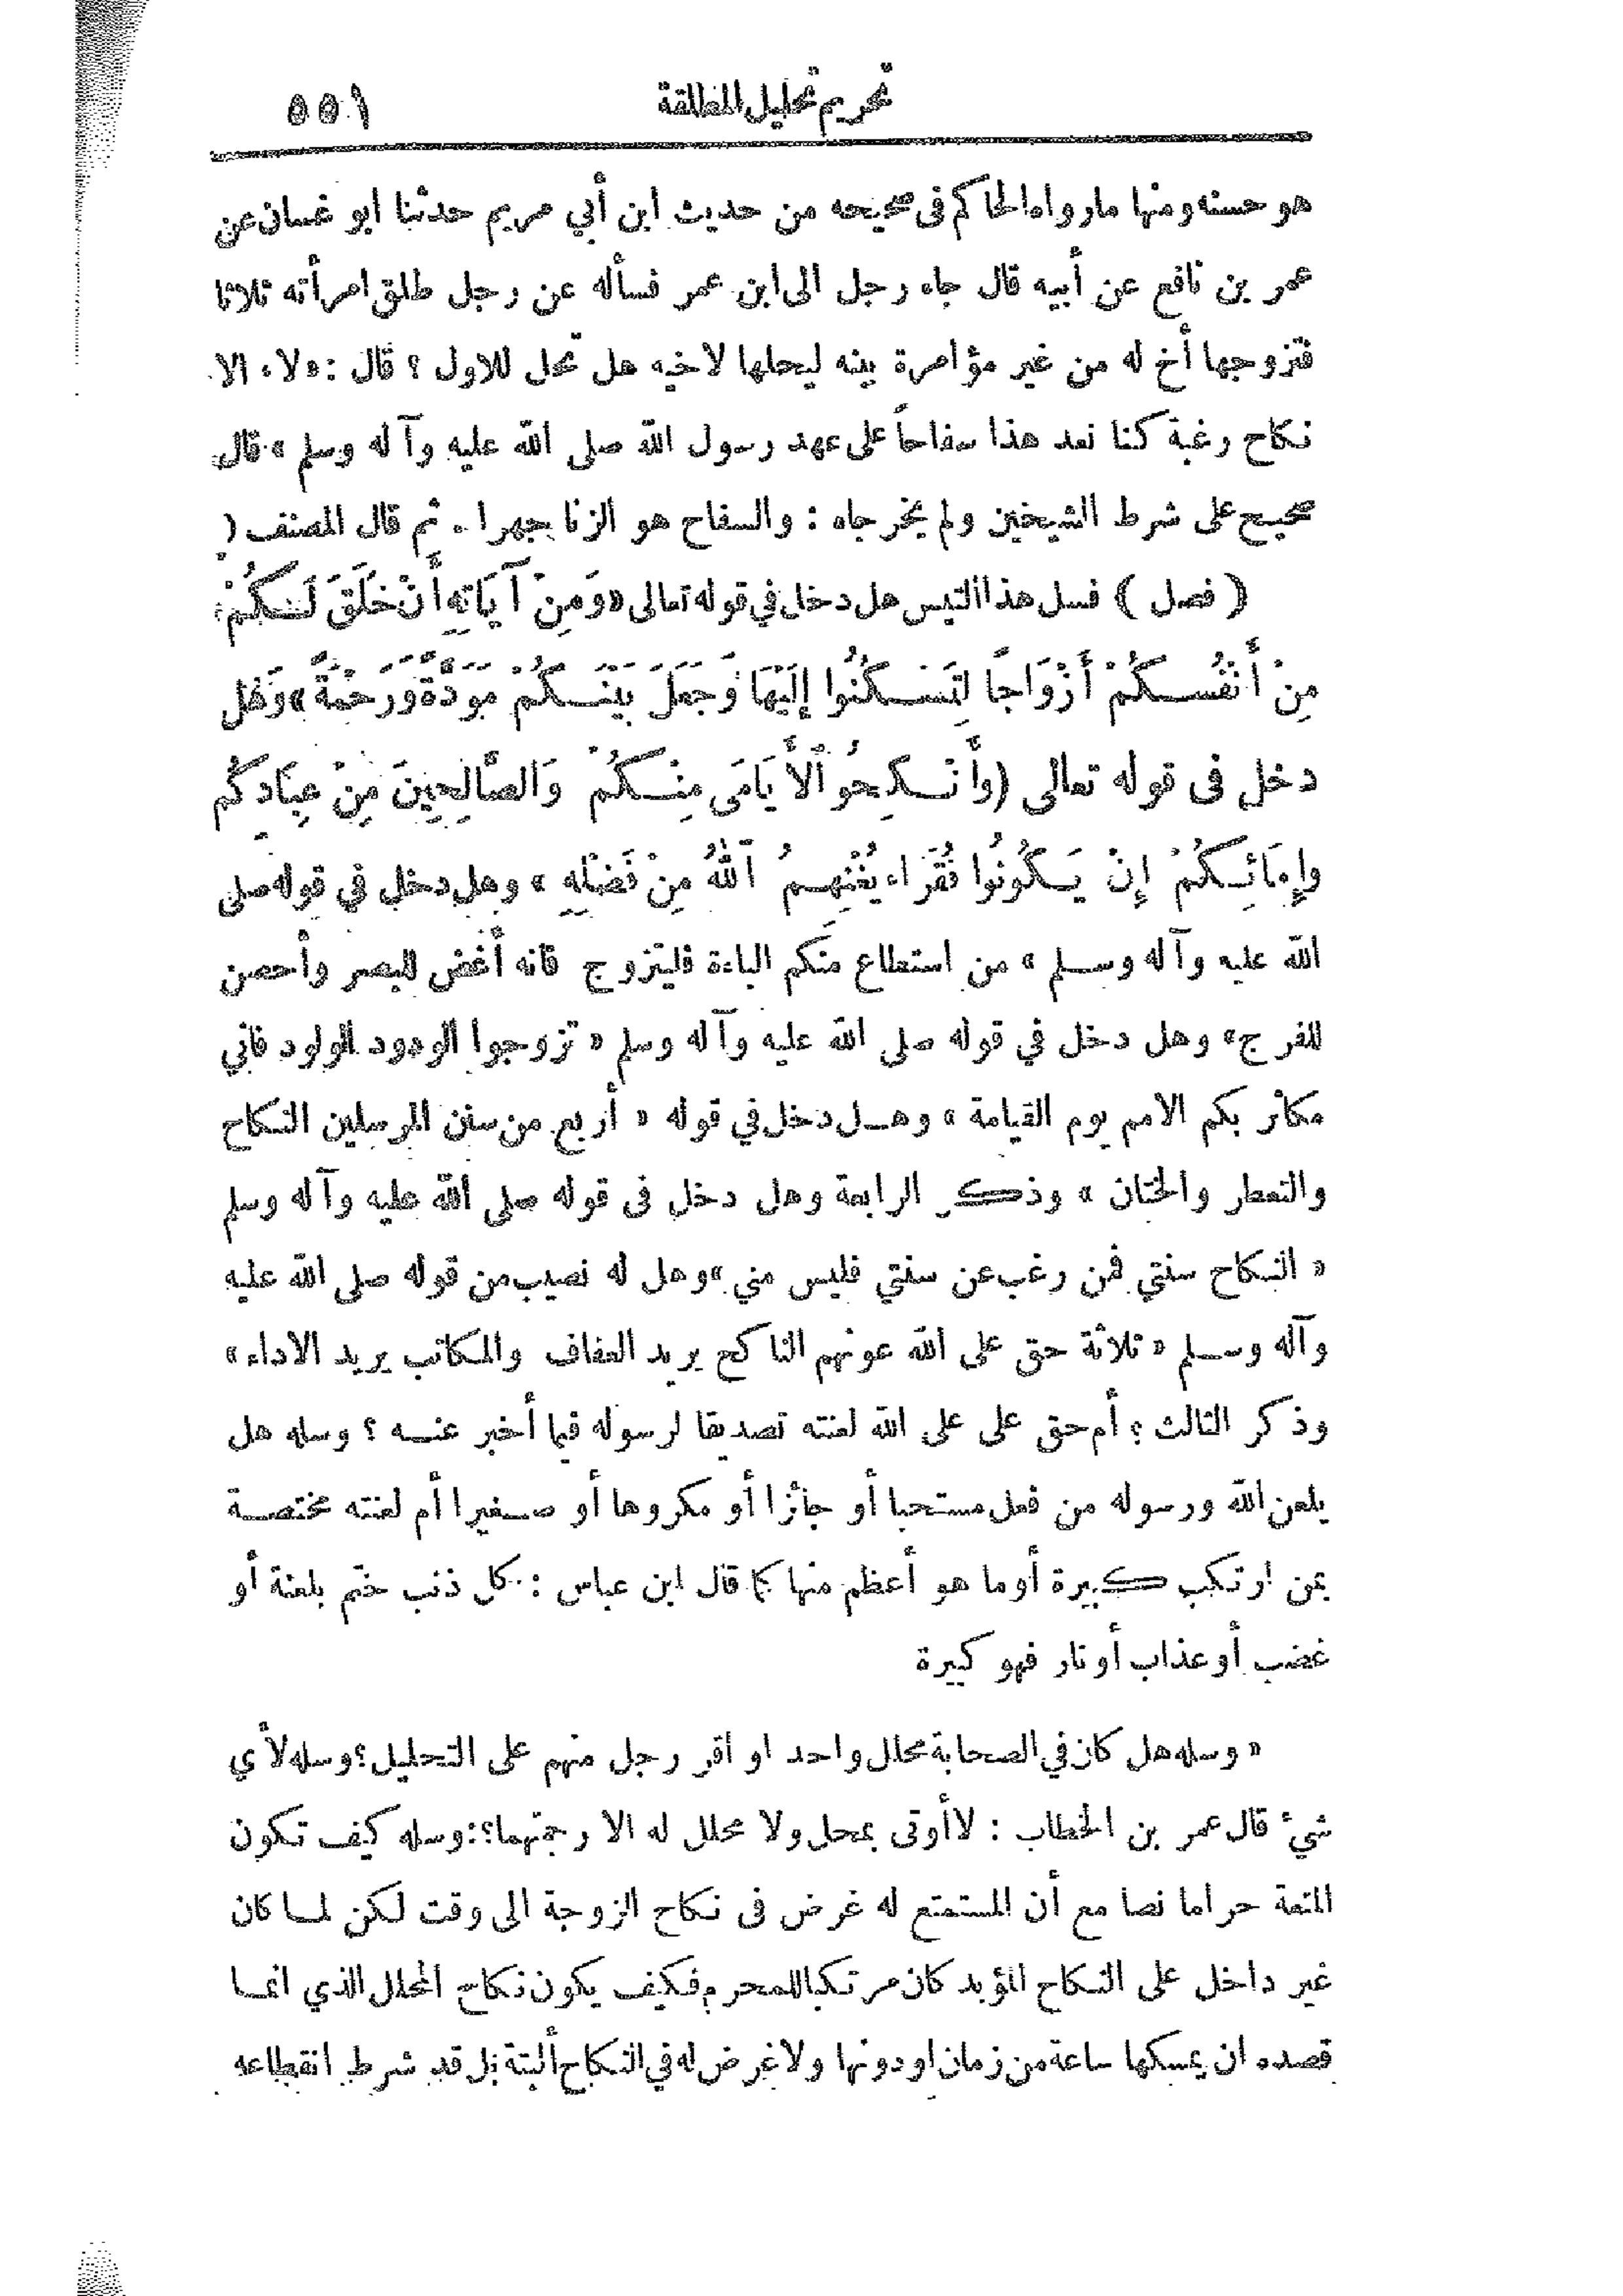 تحريم تحليل المطلقة
٥٥١
هو حسنه ومنها مارواه الحاكم فى صحيحه من حديث ابن أبي مريم حدثنا ابو غسان عن
عمر بن نافع عن أبيه قال جاء رجل الى ابن عمر فسأله عن رجل طلق امرأته ثلاثا
فتزوجها أخ له من غير مؤامرة بينه ليحلها لاخيه هل تحل للاول ؟ قال : «لاء الا
نكاح رغبة كنا نعد هذا سفاحاً على عهد رسول الله صلى الله عليه وآله وسلم » قال
صحيح على شرط الشيخين ولم يخرجاه : والسفاح هو الزنا جهرا . ثم قال المصنف (
( فصل ) فسل هذا التيس هل دخل في قوله تعالى «وَمِنْ آيَاتِهِ أَنْ خَلَقَ لَكُمْ
مِنْ أَنْفُسِكُمْ أَزْوَاجًا لِتَسْكُنُوا إِلَيْهَا وَجَعَلَ بَيْنَكُمْ مَوَدَّةً وَرَحْمَةً » وَهَل
دخل فى قوله تعالى (وأَنْكِحُو الْأَيَامَى مِنْكُمْ وَالصَّالِحِينَ مِنْ عِبَادِكُم
وإِمَائِكُمْ إِنْ يَكُونُوا فُقَرَاء يُغْنِهِمُ اللهُ مِنْ فَضْلِهِ » وهل دخل في قوله صلى
الله عليه وآله وسلم » من استطاع منكم الباءة فليتزوج فانه أغض للبصر وأحصن
للفرج» وهل دخل في قوله صلى الله عليه وآله وسلم « تزوجوا الودود الولود فاني
مكاثر بكم الامم يوم القيامة » وهل دخل في قوله « أربع من سنن المرسلين النكاح
والتعطر والختان » وذكر الرابعة وهل دخل فى قوله صلى الله عليه وآله وسلم
« النكاح سنتي فمن رغب عن سنتي فليس مني » وهل له نصيب من قوله صلى الله عليه
وآله وسلم « ثلاثة حق على الله عونهم الناكح يريد العفاف والمكاتب يريد الاداء »
وذكر الثالث ؛ أم حق على على الله لعنته تصديقا لرسوله فيما أخبر عنه ؟ وسله هل
يلعن الله ورسوله من فعل مستحبا أو جائزا أو مكروها أو صغيرا أم لعنته مختصة
بمن ارتكب كبيرة أو ما هو أعظم منها كما قال ابن عباس : كل ذنب ختم بلعنة أو
غضب أو عذاب أو نار فهو كبيرة
« وسله هل كان في الصحابة محلل واحد او أقر رجل منهم على التحليل ؟ وسله لأي
شيء قال عمر بن الخطاب : لا أوتى بمحل ولا محلل له الا رجمتهما ؟ : وسله كيف تكون
المتعة حراما نصا مع أن المستمتع له غرض فى نكاح الزوجة الى وقت لكن لما كان
غير داخل على النكاح المؤبد كان مرتكبا للمحرم فكيف يكون نكاح المحلل الذي انما
قصده ان يمسكها ساعة من زمان او دونها ولا غرض له في النكاح ألبتة بل قد شرط انقطاعه